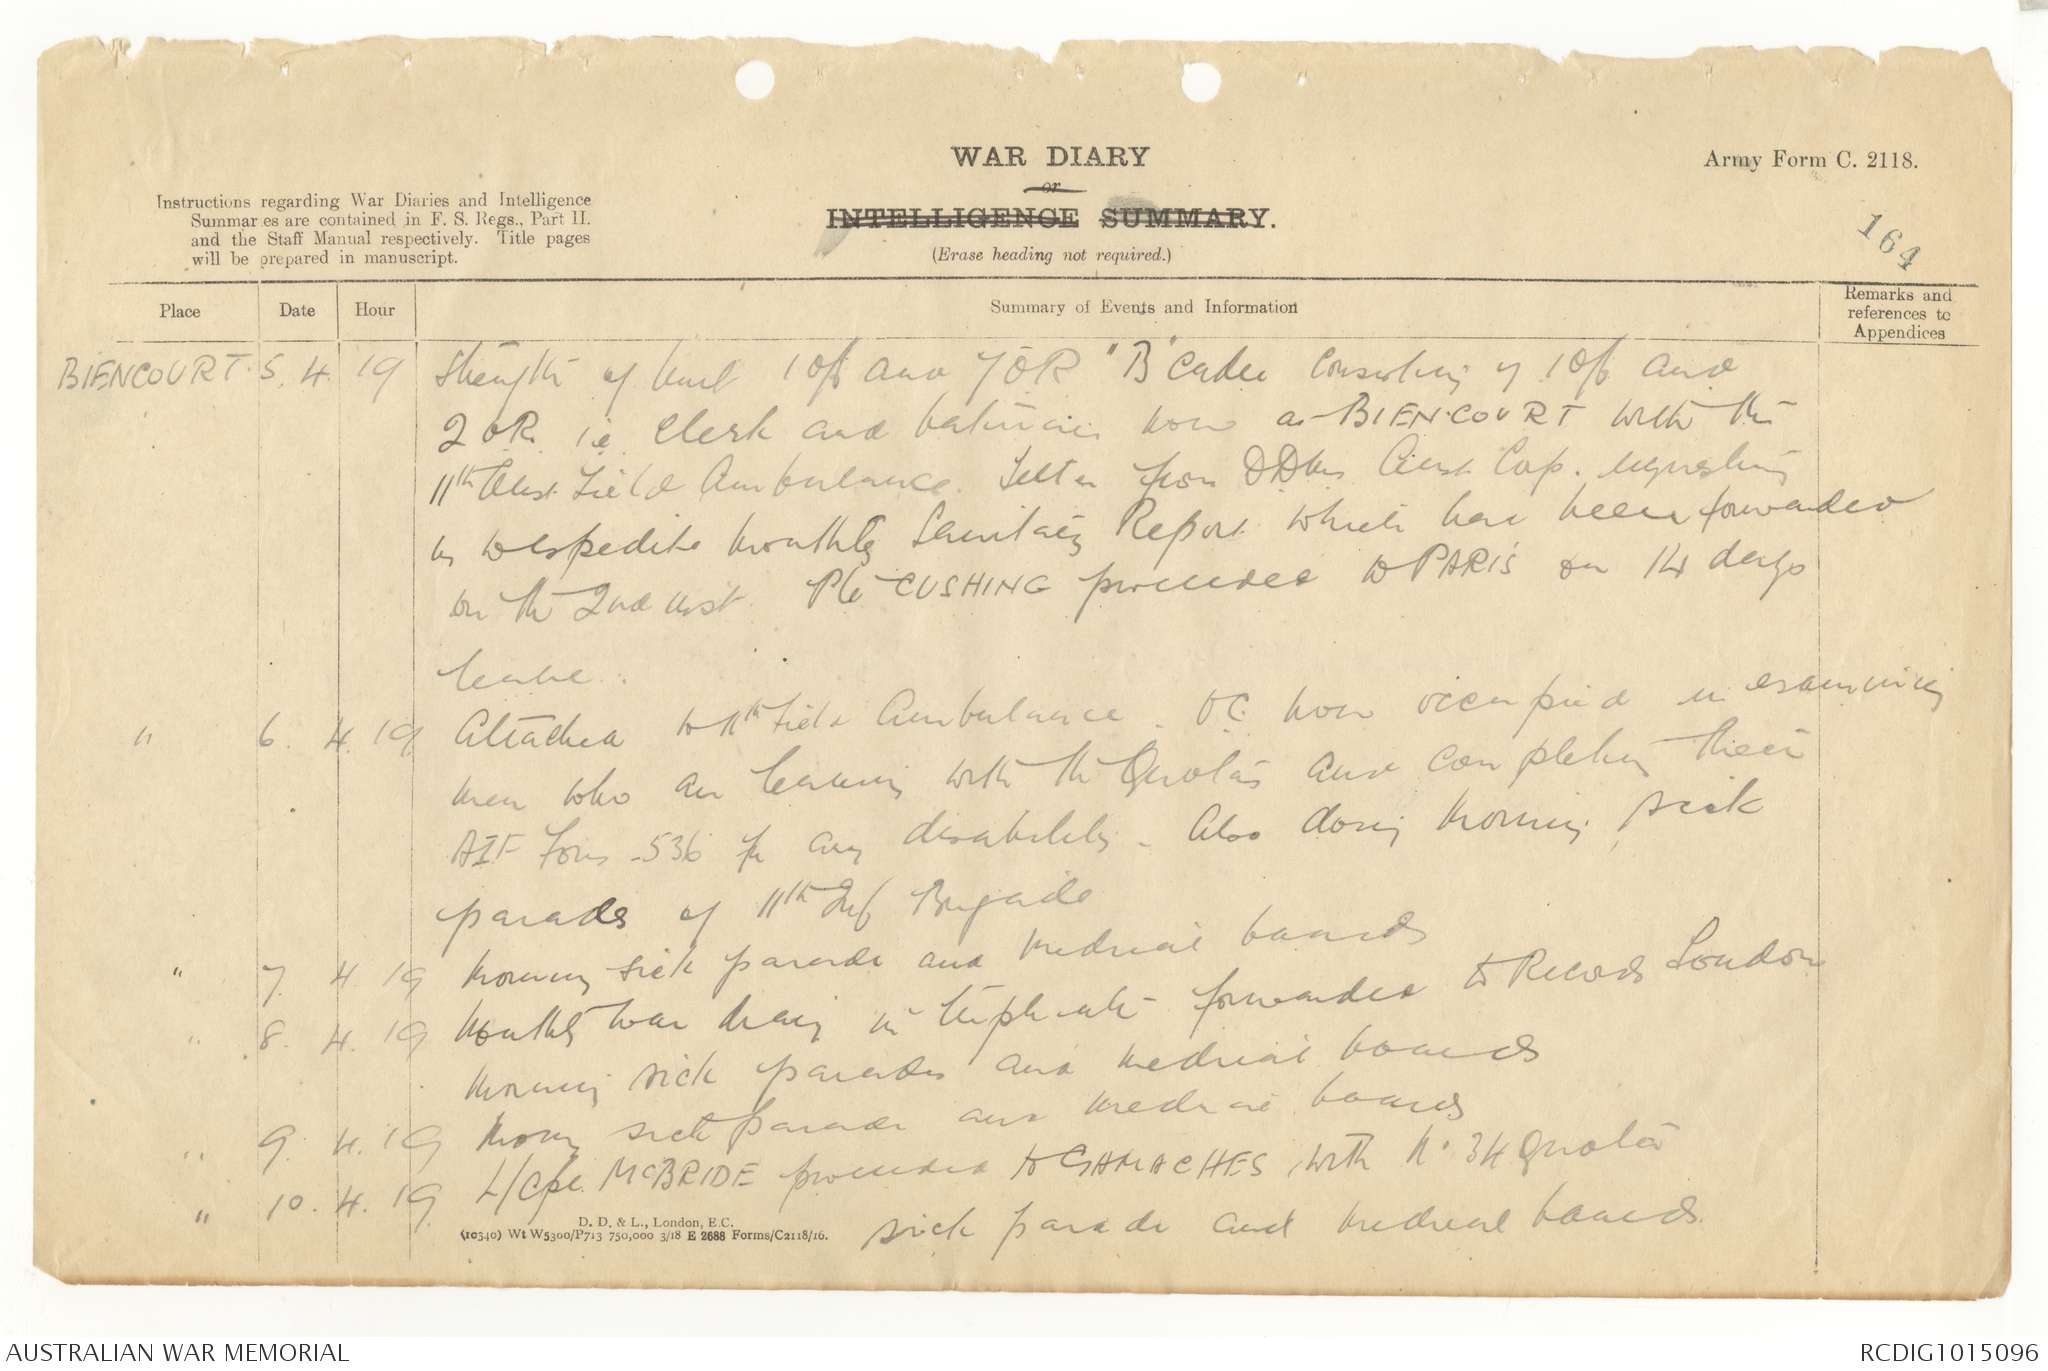 WAR DIARY
or
INTELLIGENCE SUMMARY.
(Erase heading not required.)
Army Form C. 2118.
164
Instructions regarding War Diaries and Intelligence
Summaries are contained in F. S. Regs., Part II.
and the Staff Manual respectively. Title pages
will be prepared in manuscript.
Place Date Hour Summary of Events and Information Remarks and references to Appendices
BIENCOURT. 5. 4. 19 Strength of Unit 1 Off and 7 OR "B" Cadre consisting of 1 Off and
2 OR. ie Clerk and batman now at BIENCOURT with the
11th Aust. Field Ambulance. Letter from DDMS Aust. Corp. requesting
us to expedite Monthly Sanitary Report which has been forwarded
on the 2nd inst. Pte CUSHING proceeded to PARIS on 14 days
leave.
" 6. 4. 19 Attached to 11th Field Ambulance. OC now occupied in examining
men who are leaving with the Quotas and completing their
AIF Form 536 for any disability. Also doing Morning sick
parades of 11th Inf Brigade
" 7. 4. 19 Morning sick parade and medical boards
" 8. 4. 19 Monthly War Diary in triplicate forwarded to Records London
Morning sick parades and medical boards
" 9. 4. 19 Morng sick parade and medical boards
" 10. 4. 19 L/Cpl. McBRIDE proceeded to GAMACHES with No. 34 Quota
sick parade and medical boards.
D. D. & L., London, E.C.
(10340) Wt W5300/P713 750,000 3/18 E 2688 Forms/C2118/16.
AUSTRALIAN WAR MEMORIAL
RCDIG1015096